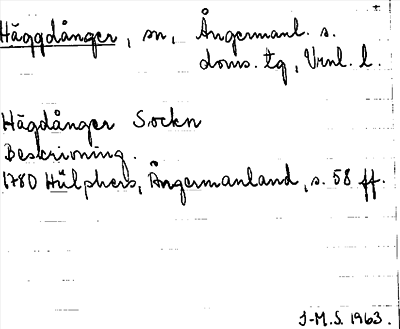 Häggdånger, sn, Ångermanl. s.
doms. tg, Vrnl. l.
Hägdånger Sockn
Beskrivning.
1780 Hülphers, Ångermanland, s. 58 ff.
J-M.S. 1963.